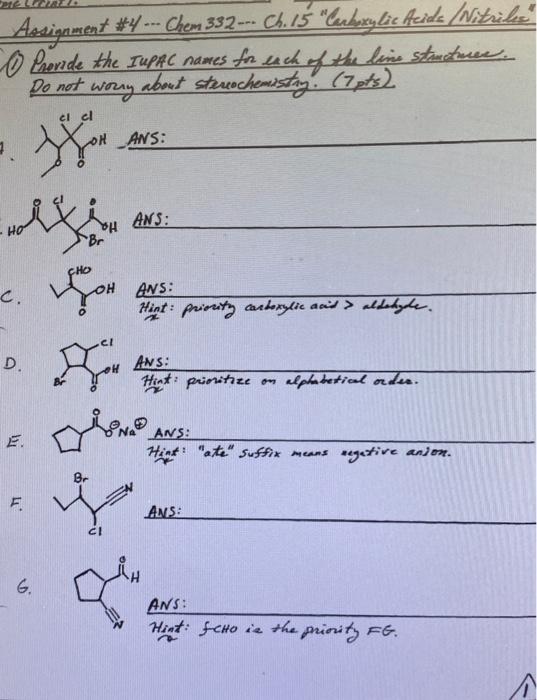 Assignment #4 --- Chem 332 --- Ch. 15 "Carboxylic Acids / Nitriles"
① Provide the IUPAC names for each of the line structures.
Do not worry about stereochemistry. (7pts)
Cl Cl
OH ANS:
O
O
Cl
O
HO
OH ANS:
Br
CHO
C.
OH ANS:
O
Hint: priority carboxylic acid > aldehyde.
Cl
D.
OH ANS:
Br
O
Hint: prioritize on alphabetical order.
O
E.
O⊖ Na⊕ ANS:
Hint: "ate" suffix means negative anion.
Br
N
F.
ANS:
Cl
O
H
G.
ANS:
N
Hint: fCHO is the priority FG.
1